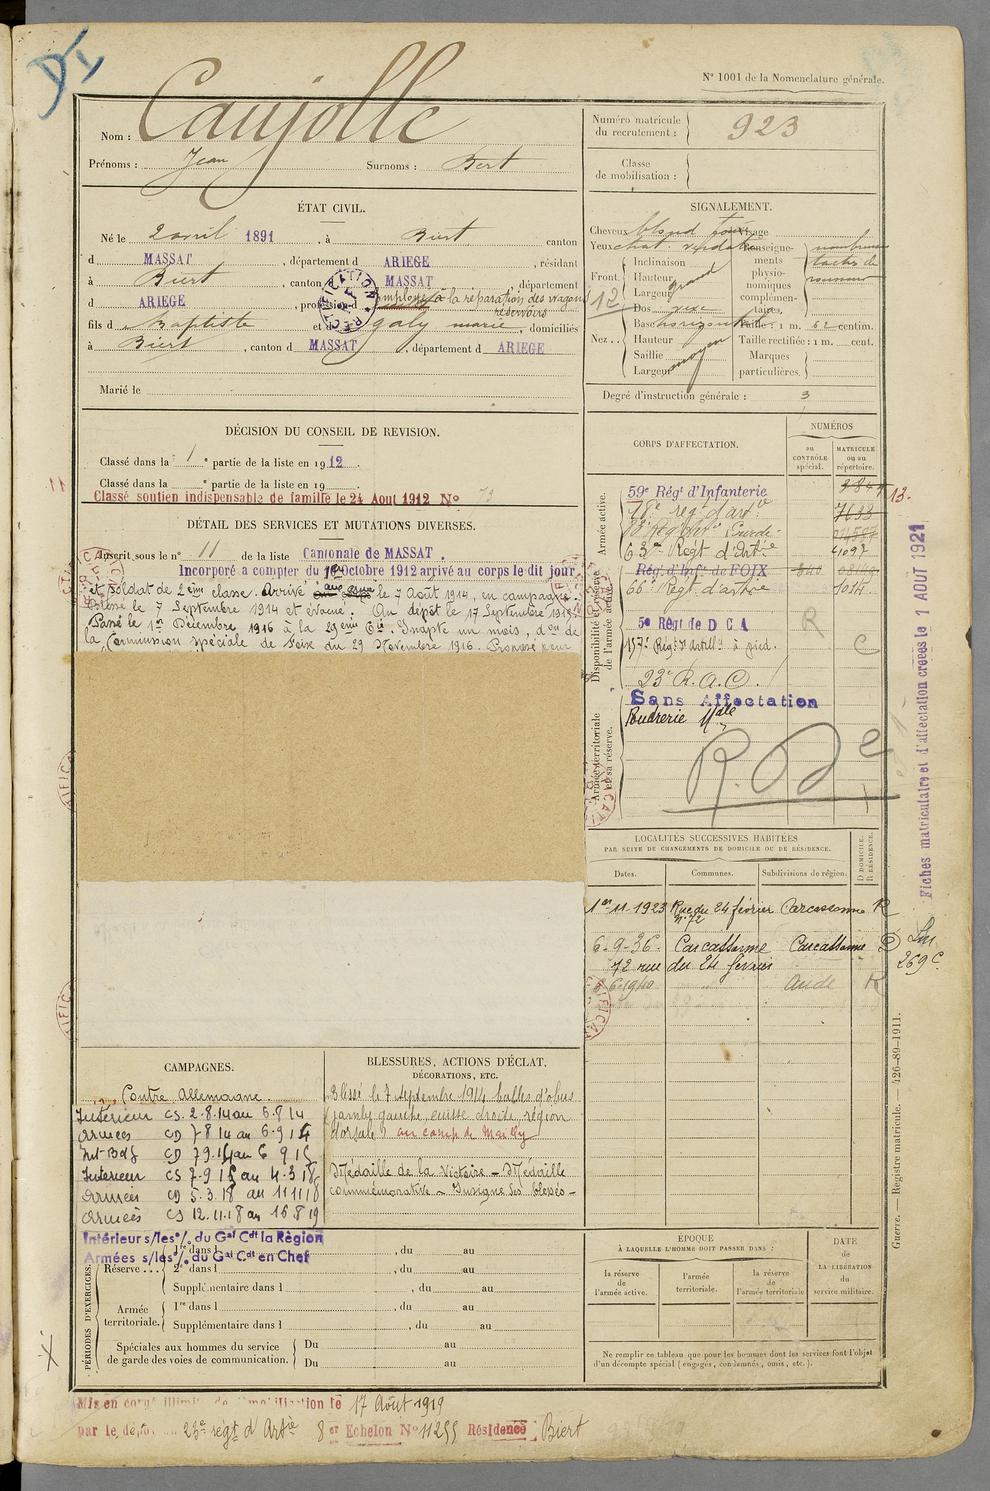 N° 1001 de la Nomenclature générale.
Nom : Caujolle
Prénoms : Jean Surnoms : Bert
Numéro matricule du recrutement : 923
Classe de mobilisation :
ÉTAT CIVIL.
Né le 2 avril 1891, à Biert canton
d MASSAT, département d ARIEGE, résidant
à Biert, canton MASSAT département
d ARIEGE, profession d employé à la réparation des wagons
réservoirs
RECTIFICATION
fils d Baptiste et d Galy marie, domiciliés
à Biert, canton d MASSAT, département d ARIEGE
Marié le
SIGNALEMENT.
Cheveux blond
Yeux
Front. Inclinaison
Hauteur grand
Largeur
Nez. Dos
Base horizontale
Hauteur
Saillie moyen
Largeur
Renseignements physionomiques complémentaires.
nombreuses taches de rousseur
Taille : 1 m. 62 centim.
Taille rectifiée : 1 m. cent.
Marques particulières.
Degré d'instruction générale : 3
12
DÉCISION DU CONSEIL DE REVISION.
Classé dans la 1e partie de la liste en 1912.
Classé dans la e partie de la liste en 19
Classé soutien indispensable de famille le 24 Aout 1912 N° 73
DÉTAIL DES SERVICES ET MUTATIONS DIVERSES.
Inscrit sous le n° 11 de la liste Cantonale de MASSAT.
Incorporé a compter du 1er Octobre 1912 arrivé au corps le dit jour
et soldat de 2ème classe. Arrivé aux armées le 7 Août 1914, en campagne.
Blessé le 7 Septembre 1914 et évacué. Au dépôt le 17 Septembre 1915
Passé le 1er Décembre 1916 à la 29ème Cie. Inapte un mois, don de
la Commission spéciale de Foix du 29 Novembre 1916. Proposé pour
CORPS D'AFFECTATION.
NUMÉROS
au CONTRÔLE spécial.
MATRICULE ou au répertoire.
Armée active.
59e Régt d'Infanterie
18e rég d'artie 7633
63e Régt d'Artie 4097
Disponibilité et réserve de l'armée active.
Rég. d'Inf. de FOIX
66e Régt d'artie 1014
5e Régt de D C A R
157e Régt d'artill. à pied. C
23e R.A.C.
Armée territoriale et sa réserve.
Sans Affectation
Poudrerie Nale
Fiches matriculaire et d'affectation créées le 1 AOUT 1921
LOCALITÉS SUCCESSIVES HABITÉES
PAR SUITE DE CHANGEMENTS DE DOMICILE OU DE RÉSIDENCE.
Dates. Communes. Subdivisions de région. D DOMICILE. R RÉSIDENCE.
1er 11-1923 Rue du 24 février n° 72 Carcassonne R
6-9-36 Carcassonne Carcassonne D
72 rue du 24 février
6-1940 Aude R
269 C
CAMPAGNES.
Contre Allemagne.
Intérieur CS. 2-8-14 au 6-8-14
Armées CD 7-8-14 au 6-9-14
Int Bds CD 7.9.14 au 6 9 15
Intérieur CS 7-9-15 au 4-3-18
Armées CD 5.3.18 au 11 11 18
Armées CS 12.11.18 au 16 8 19
Intérieur s/les % du Gal Cdt la Région
Armées s/les % du Gal Cdt en Chef
BLESSURES, ACTIONS D'ÉCLAT,
DÉCORATIONS, ETC.
Blessé le 7 septembre 1914 balles d'obus
jambe gauche, cuisse droite, région
dorsale au camp de Mailly
Médaille de la Victoire - Médaille
commémorative - Insigne des blessés -
PÉRIODES D'EXERCICES.
Réserve... 1re dans l , du au
2e dans l , du au
Supplémentaire dans l , du au
Armée territoriale. 1re dans l , du au
Supplémentaire dans l , du au
Spéciales aux hommes du service de garde des voies de communication. Du au
Du au
ÉPOQUE
À LAQUELLE L'HOMME DOIT PASSER DANS :
la réserve de l'armée active.
l'armée territoriale.
la réserve de l'armée territoriale
DATE de LA LIBÉRATION du service militaire.
Ne remplir ce tableau que pour les hommes dont les services font l'objet
d'un décompte spécial (engagés, condamnés, omis, etc.).
Guerre. — Registre matricule. — 426-89-1911.
Mis en congé illimité de démobilisation le 17 Août 1919
par le dépôt du 23e régt d'Artie 8er Echelon N° 11255 Résidence : Biert